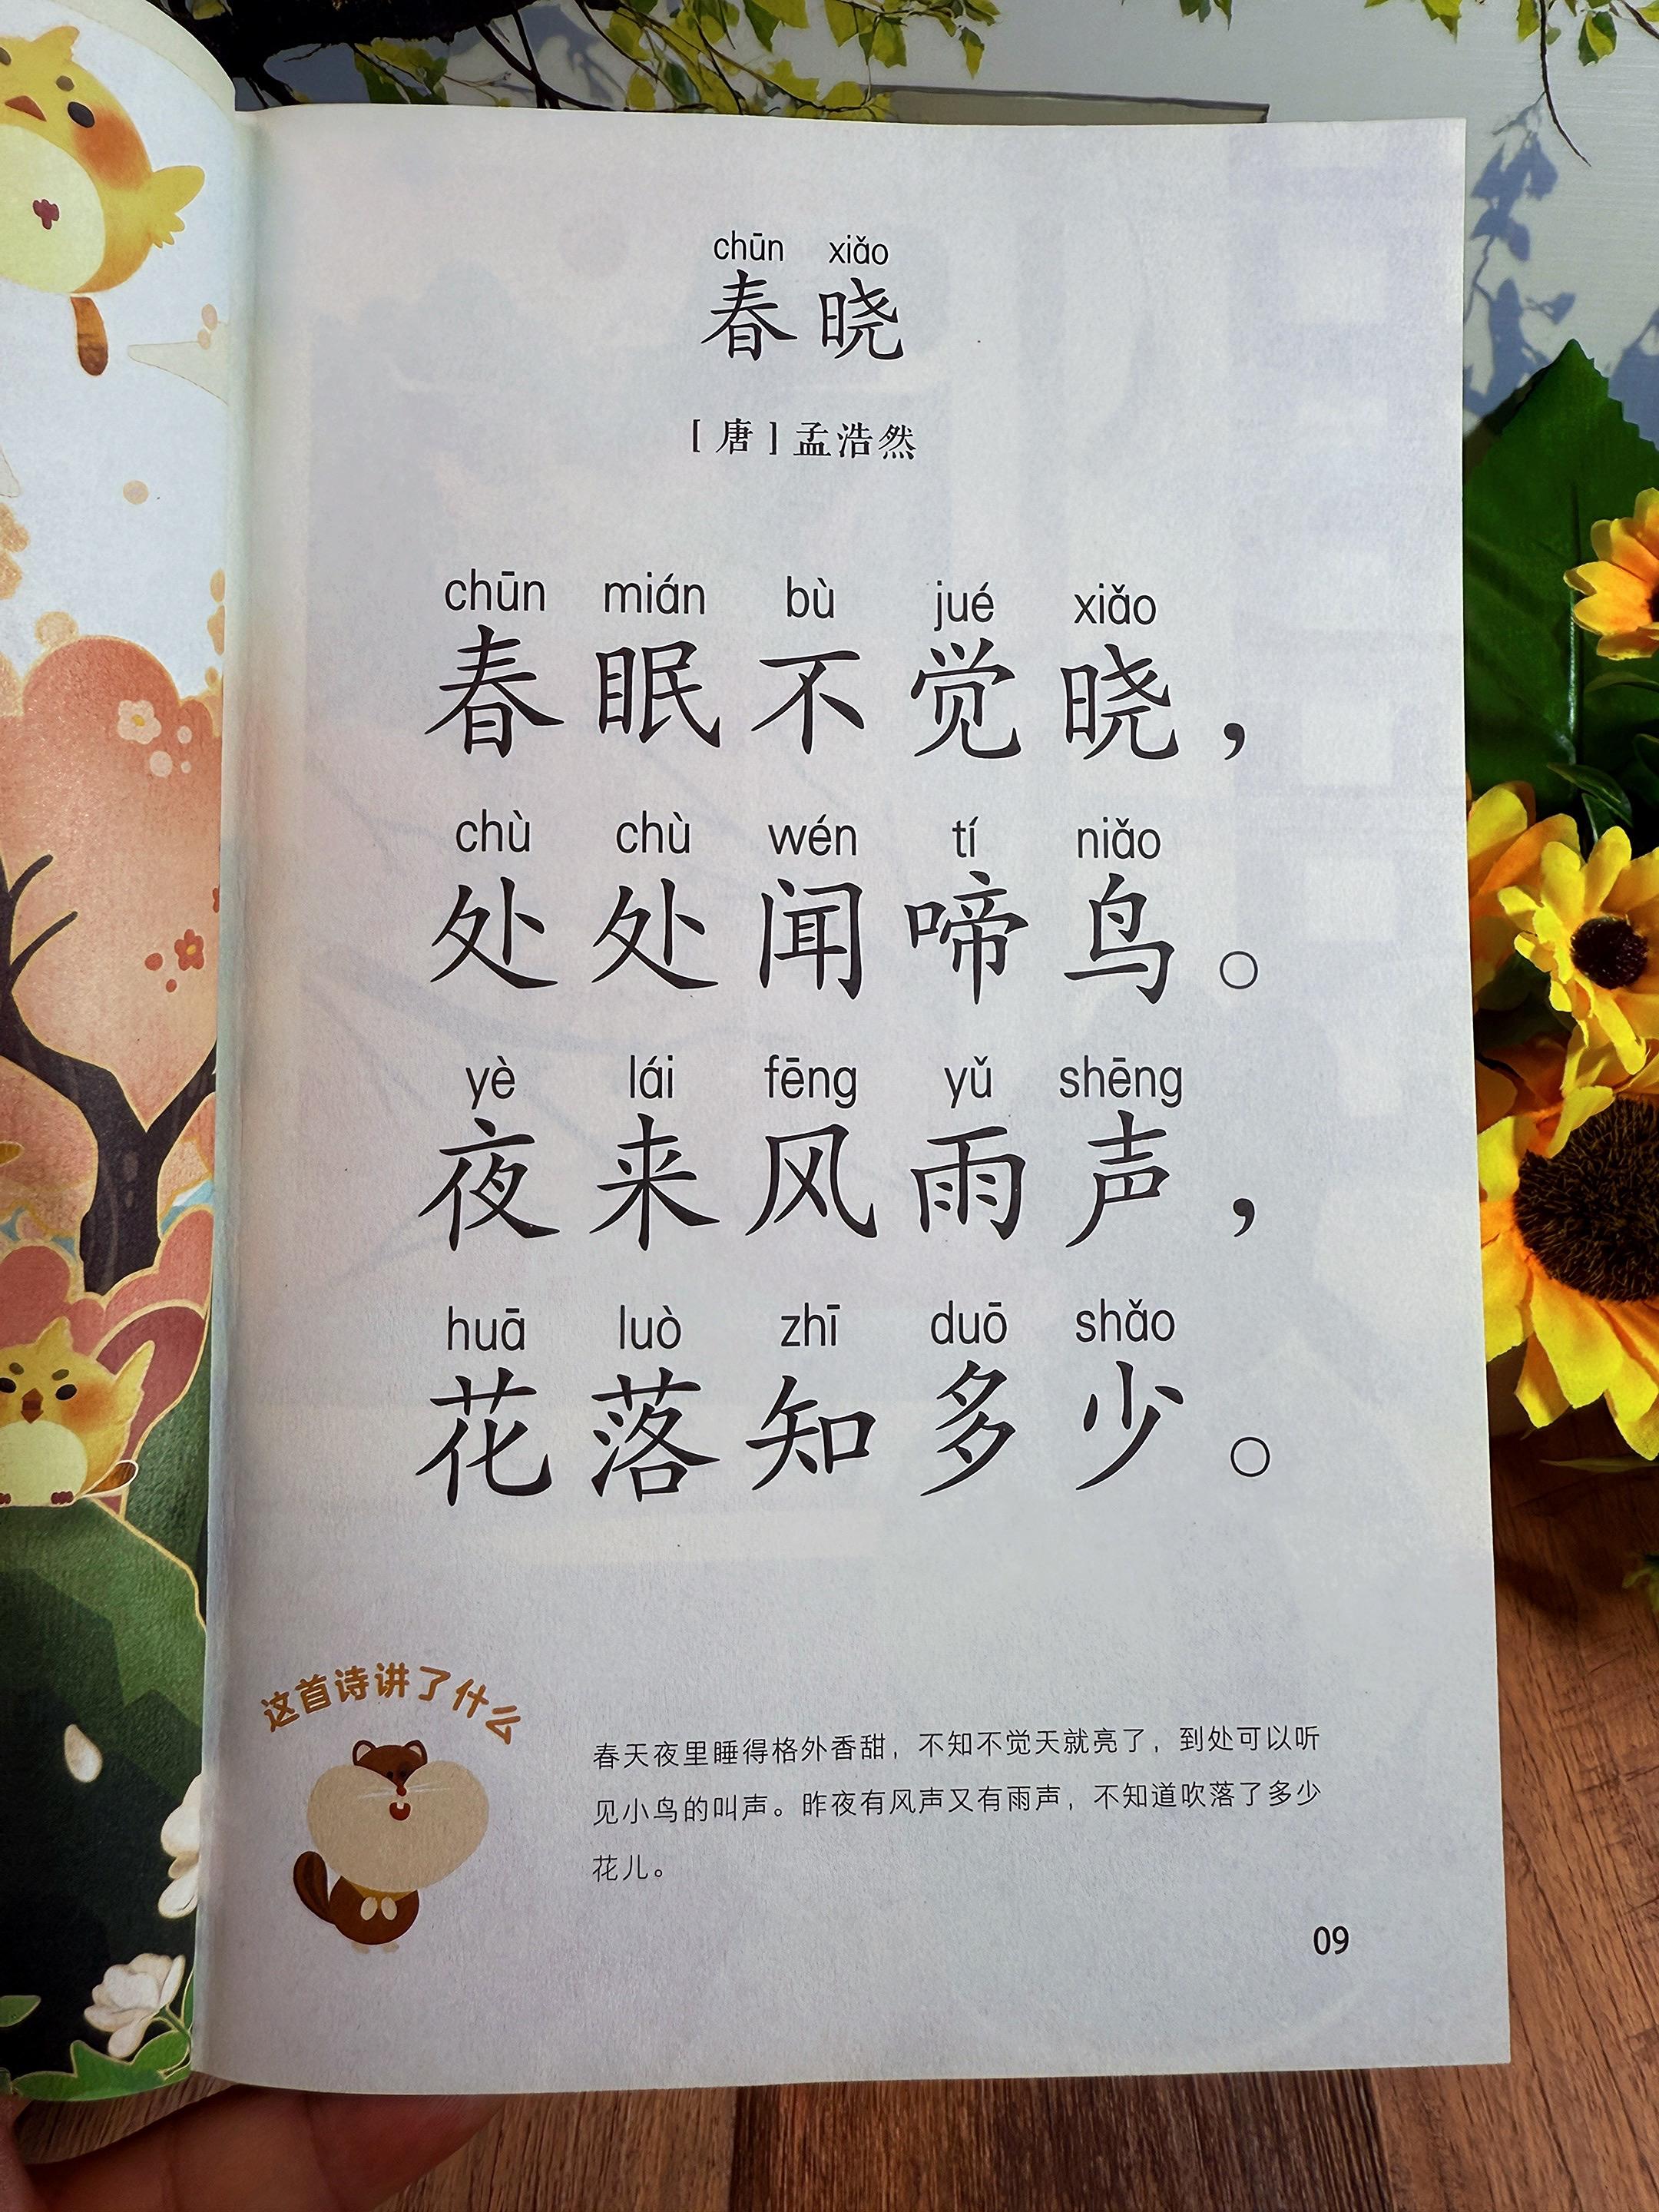 chūn xiǎo
春晓
[唐]孟浩然
chūn mián bù jué xiǎo
春眠不觉晓，
chù chù wén tí niǎo
处处闻啼鸟。
yè lái fēng yǔ shēng
夜来风雨声，
huā luò zhī duō shǎo
花落知多少。
这首诗讲了什么
春天夜里睡得格外香甜，不知不觉天就亮了，到处可以听
见小鸟的叫声。昨夜有风声又有雨声，不知道吹落了多少
花儿。
09